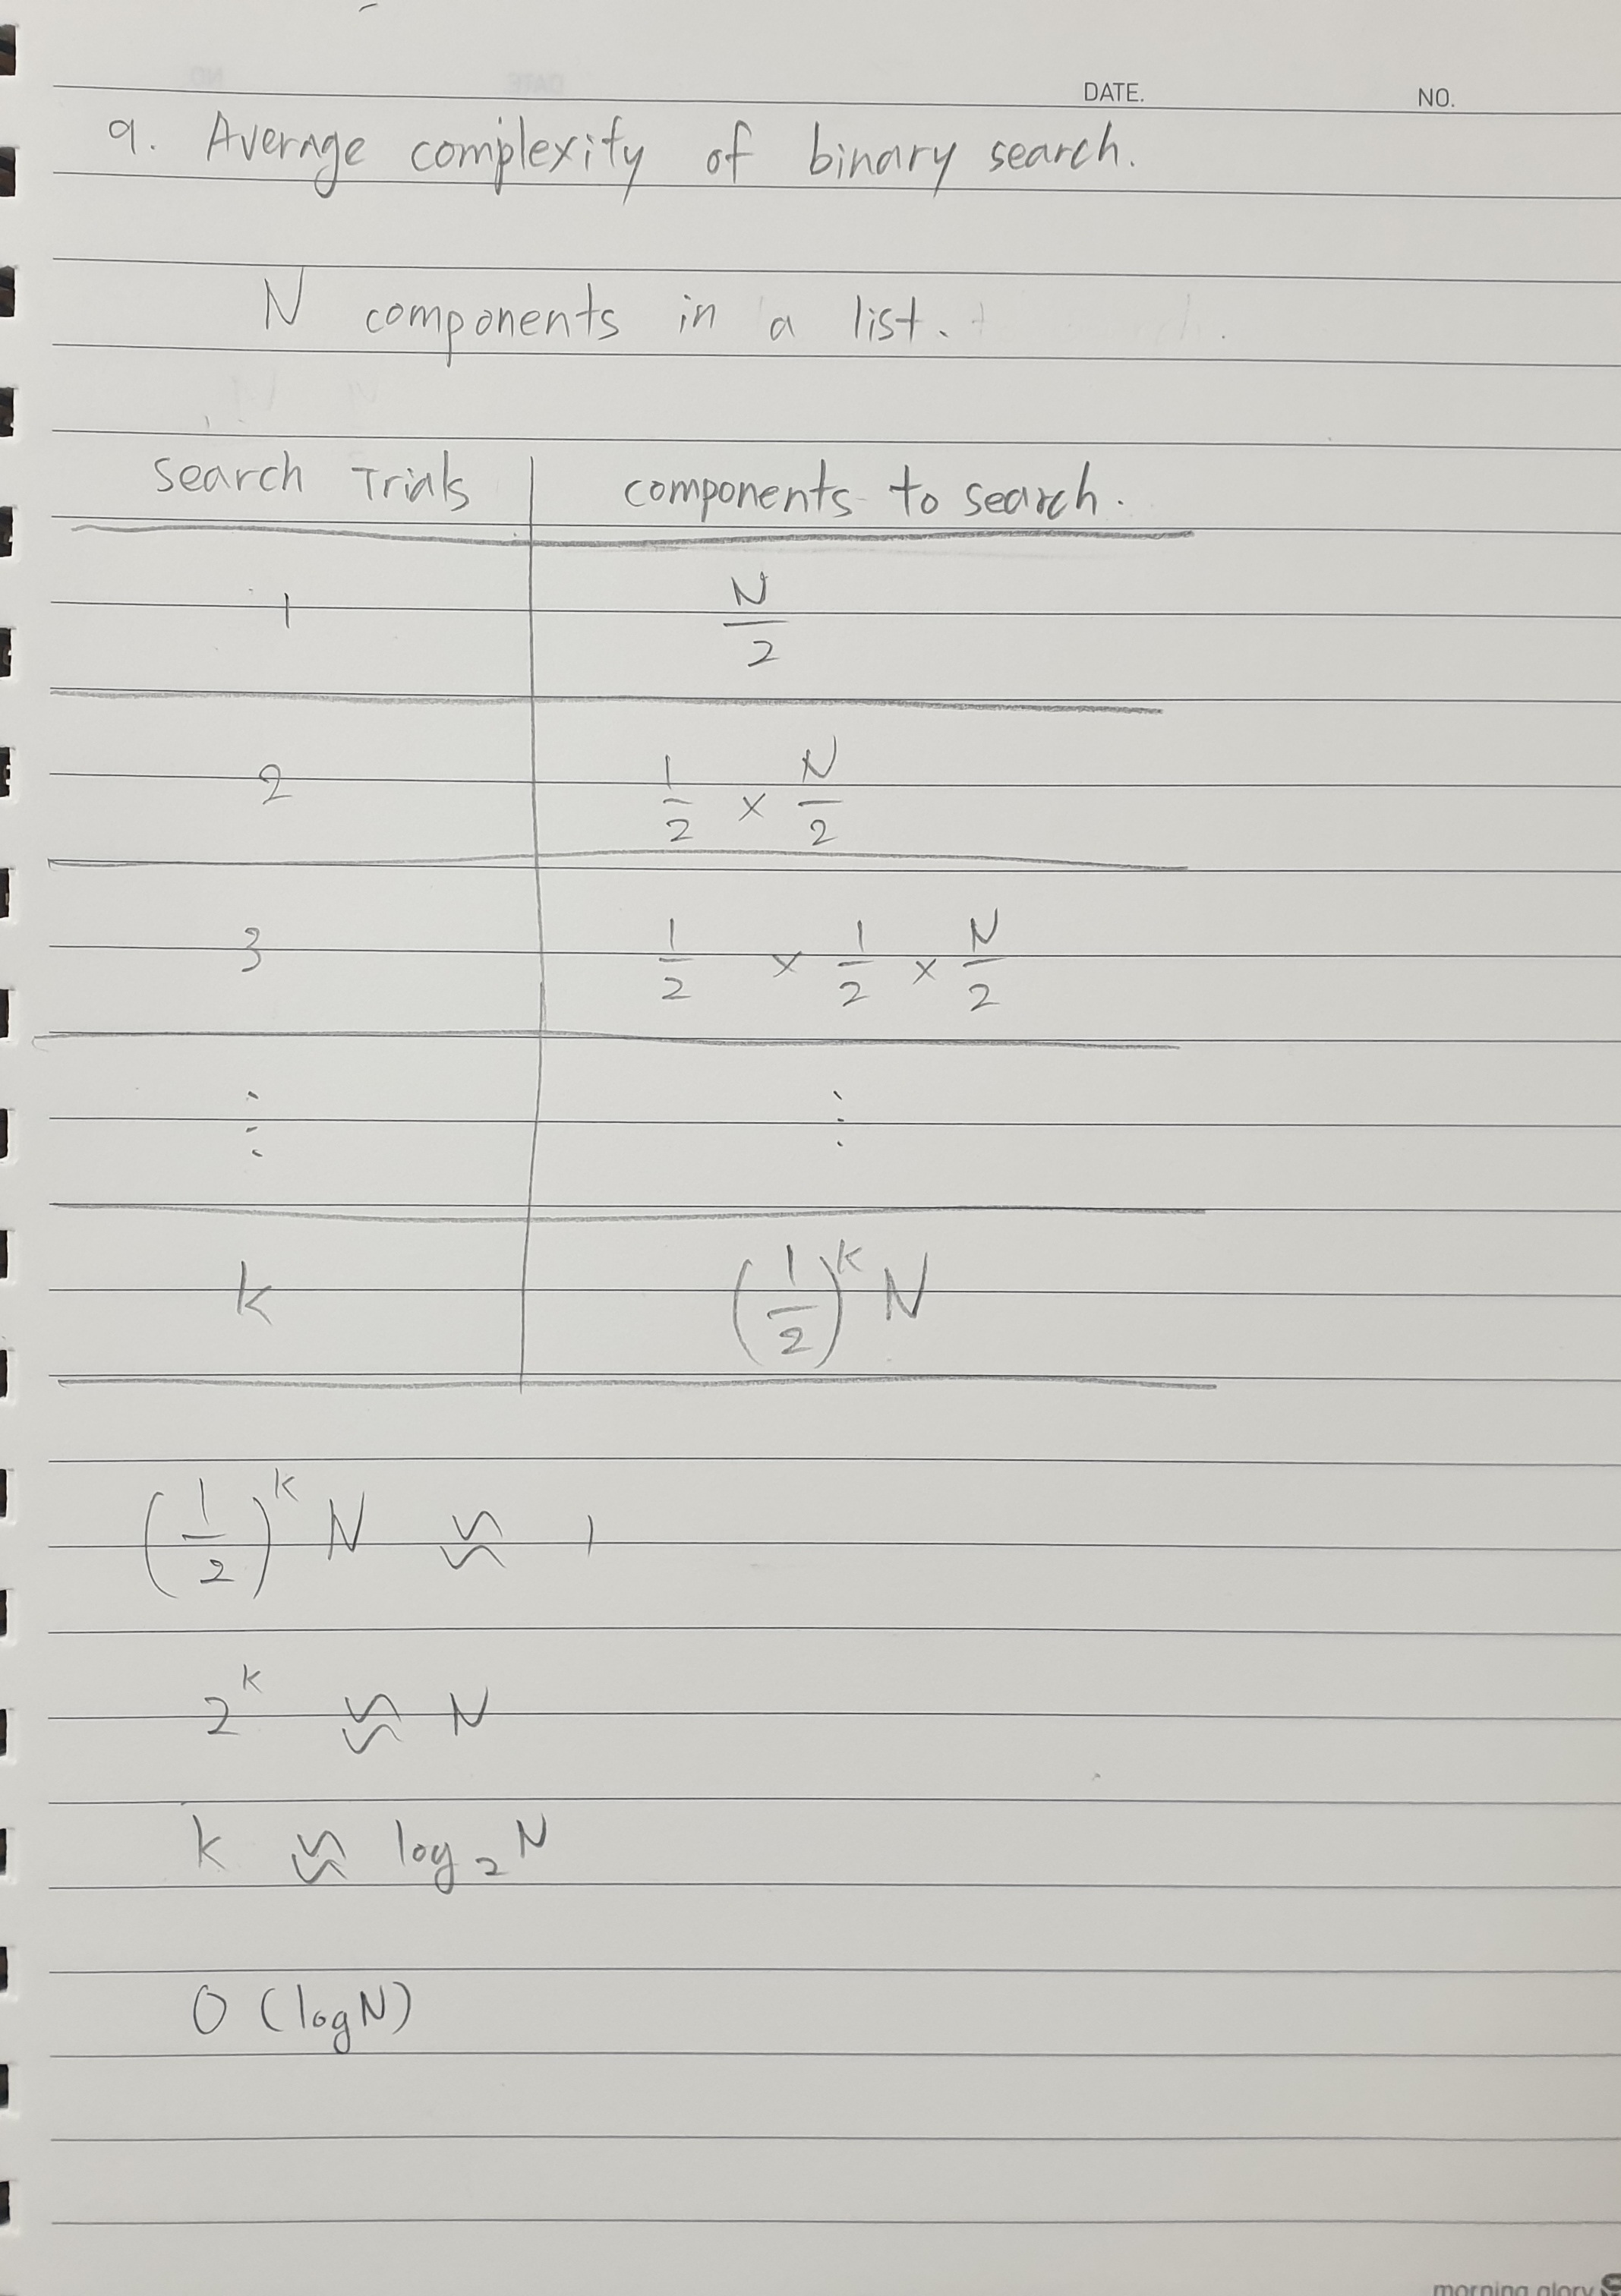 DATE.
NO.
9. Average complexity of binary search.
N components in a list.
search Trials | components to search.
1 | N/2
2 | 1/2 × N/2
3 | 1/2 × 1/2 × N/2
⋮ | ⋮
k | (1/2)^k N
(1/2)^k N ≈ 1
2^k ≈ N
k ≈ log₂N
O (logN)
morning glory